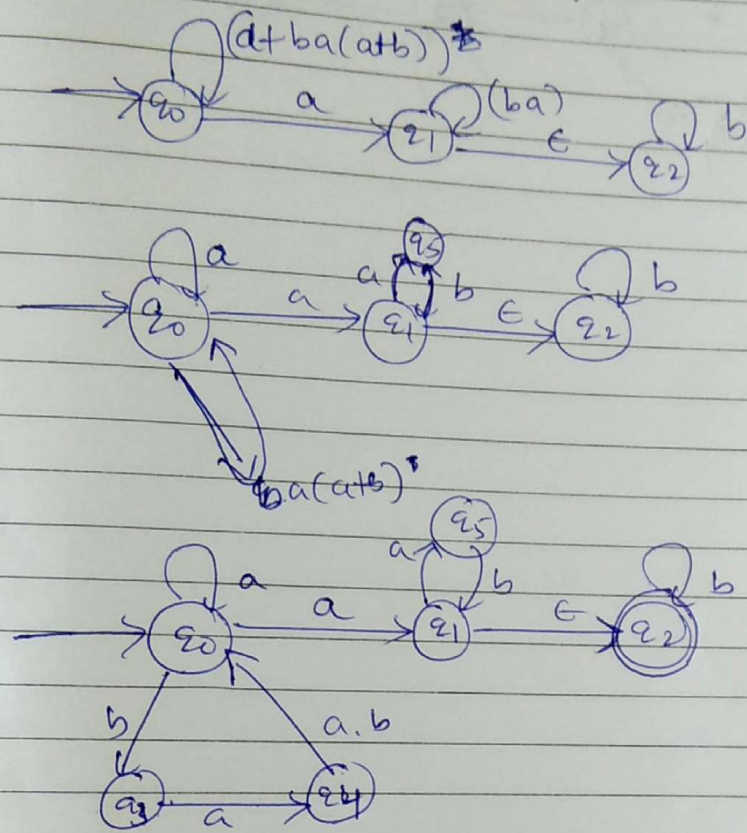 (a+ba(a+b))*
q0 a q1 (ba) ε q2 b
q5
a a b b
q0 a q1 ε q2
ba(a+b)*
q5
a a b b
q0 a q1 ε q2
b a.b
q3 a q4